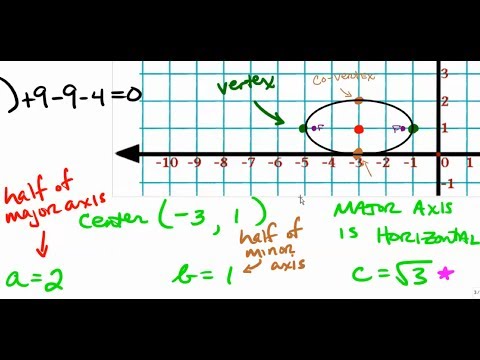 co-vertex
vertex
)+9-9-4=0
3
2
1
F F
-10 -9 -8 -7 -6 -5 -4 -3 -2 -1
-1
half of
major axis
center (-3, 1)
MAJOR AXIS
IS HORIZONTAL
half of
minor
axis
a=2
b=1
c=√3 *